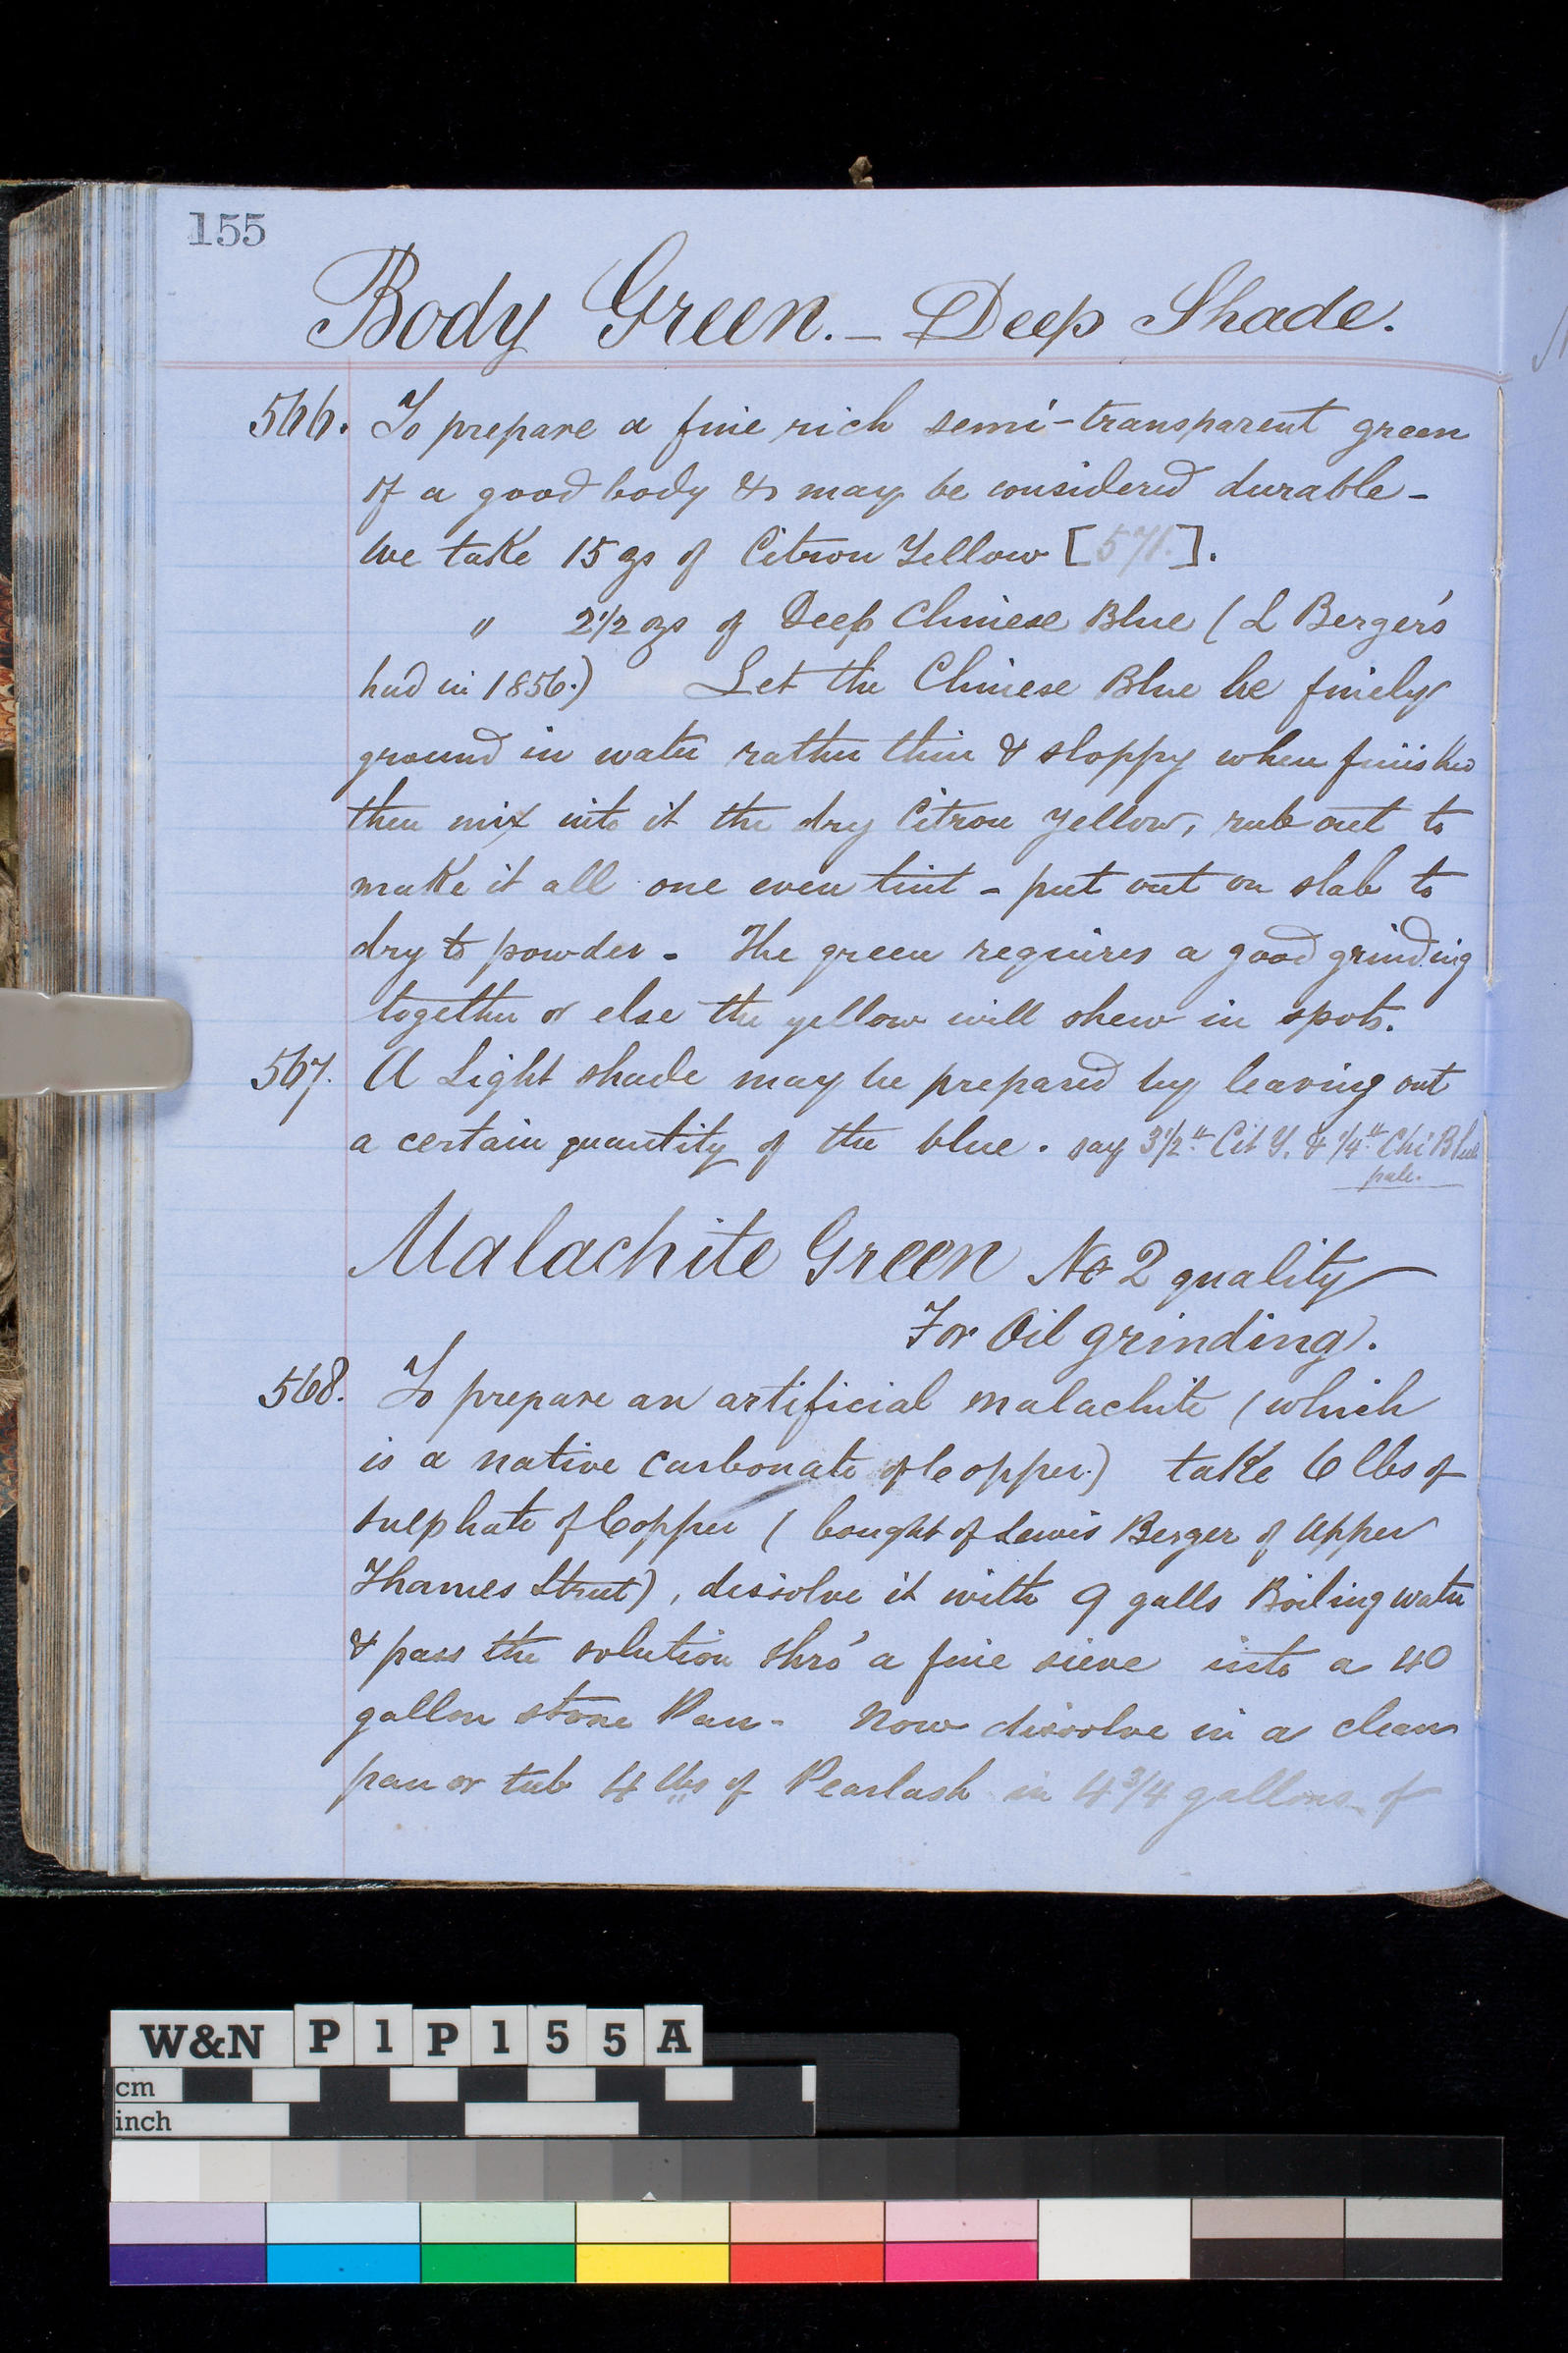 155
Body Green. - Deep Shade.
566. To prepare a fine rich semi-transparent green
of a good body & may be considered durable -
We take 15 ozs of Citron Yellow [571.].
" 2 1/2 ozs of Deep Chinese Blue (L Berger's
had in 1856.) Let the Chinese Blue be finely
ground in water rather thin & sloppy when finished
then mix into it the dry Citron Yellow, rub out to
make it all one even tint - put out on slab to
dry to powder. The green requires a good grinding
together or else the yellow will shew in spots.
567. A Light shade may be prepared by leaving out
a certain quantity of the blue. say 3 1/2 " Cit Y. & 1/4 " Chi Blue
pale.
Malachite Green No 2 quality
For Oil grinding.
568. To prepare an artificial malachite (which
is a native Carbonate of Copper.) take 6 lbs of
sulphate of Copper (bought of Lewis Berger of Upper
Thames Street), dissolve it with 9 galls Boiling water
& pass the solution thro' a fine sieve into a 40
gallon stone Pan - Now dissolve in a clean
pan or tub 4 lbs of Pearlash in 4 3/4 gallons of
W&N P1P155A
cm
inch